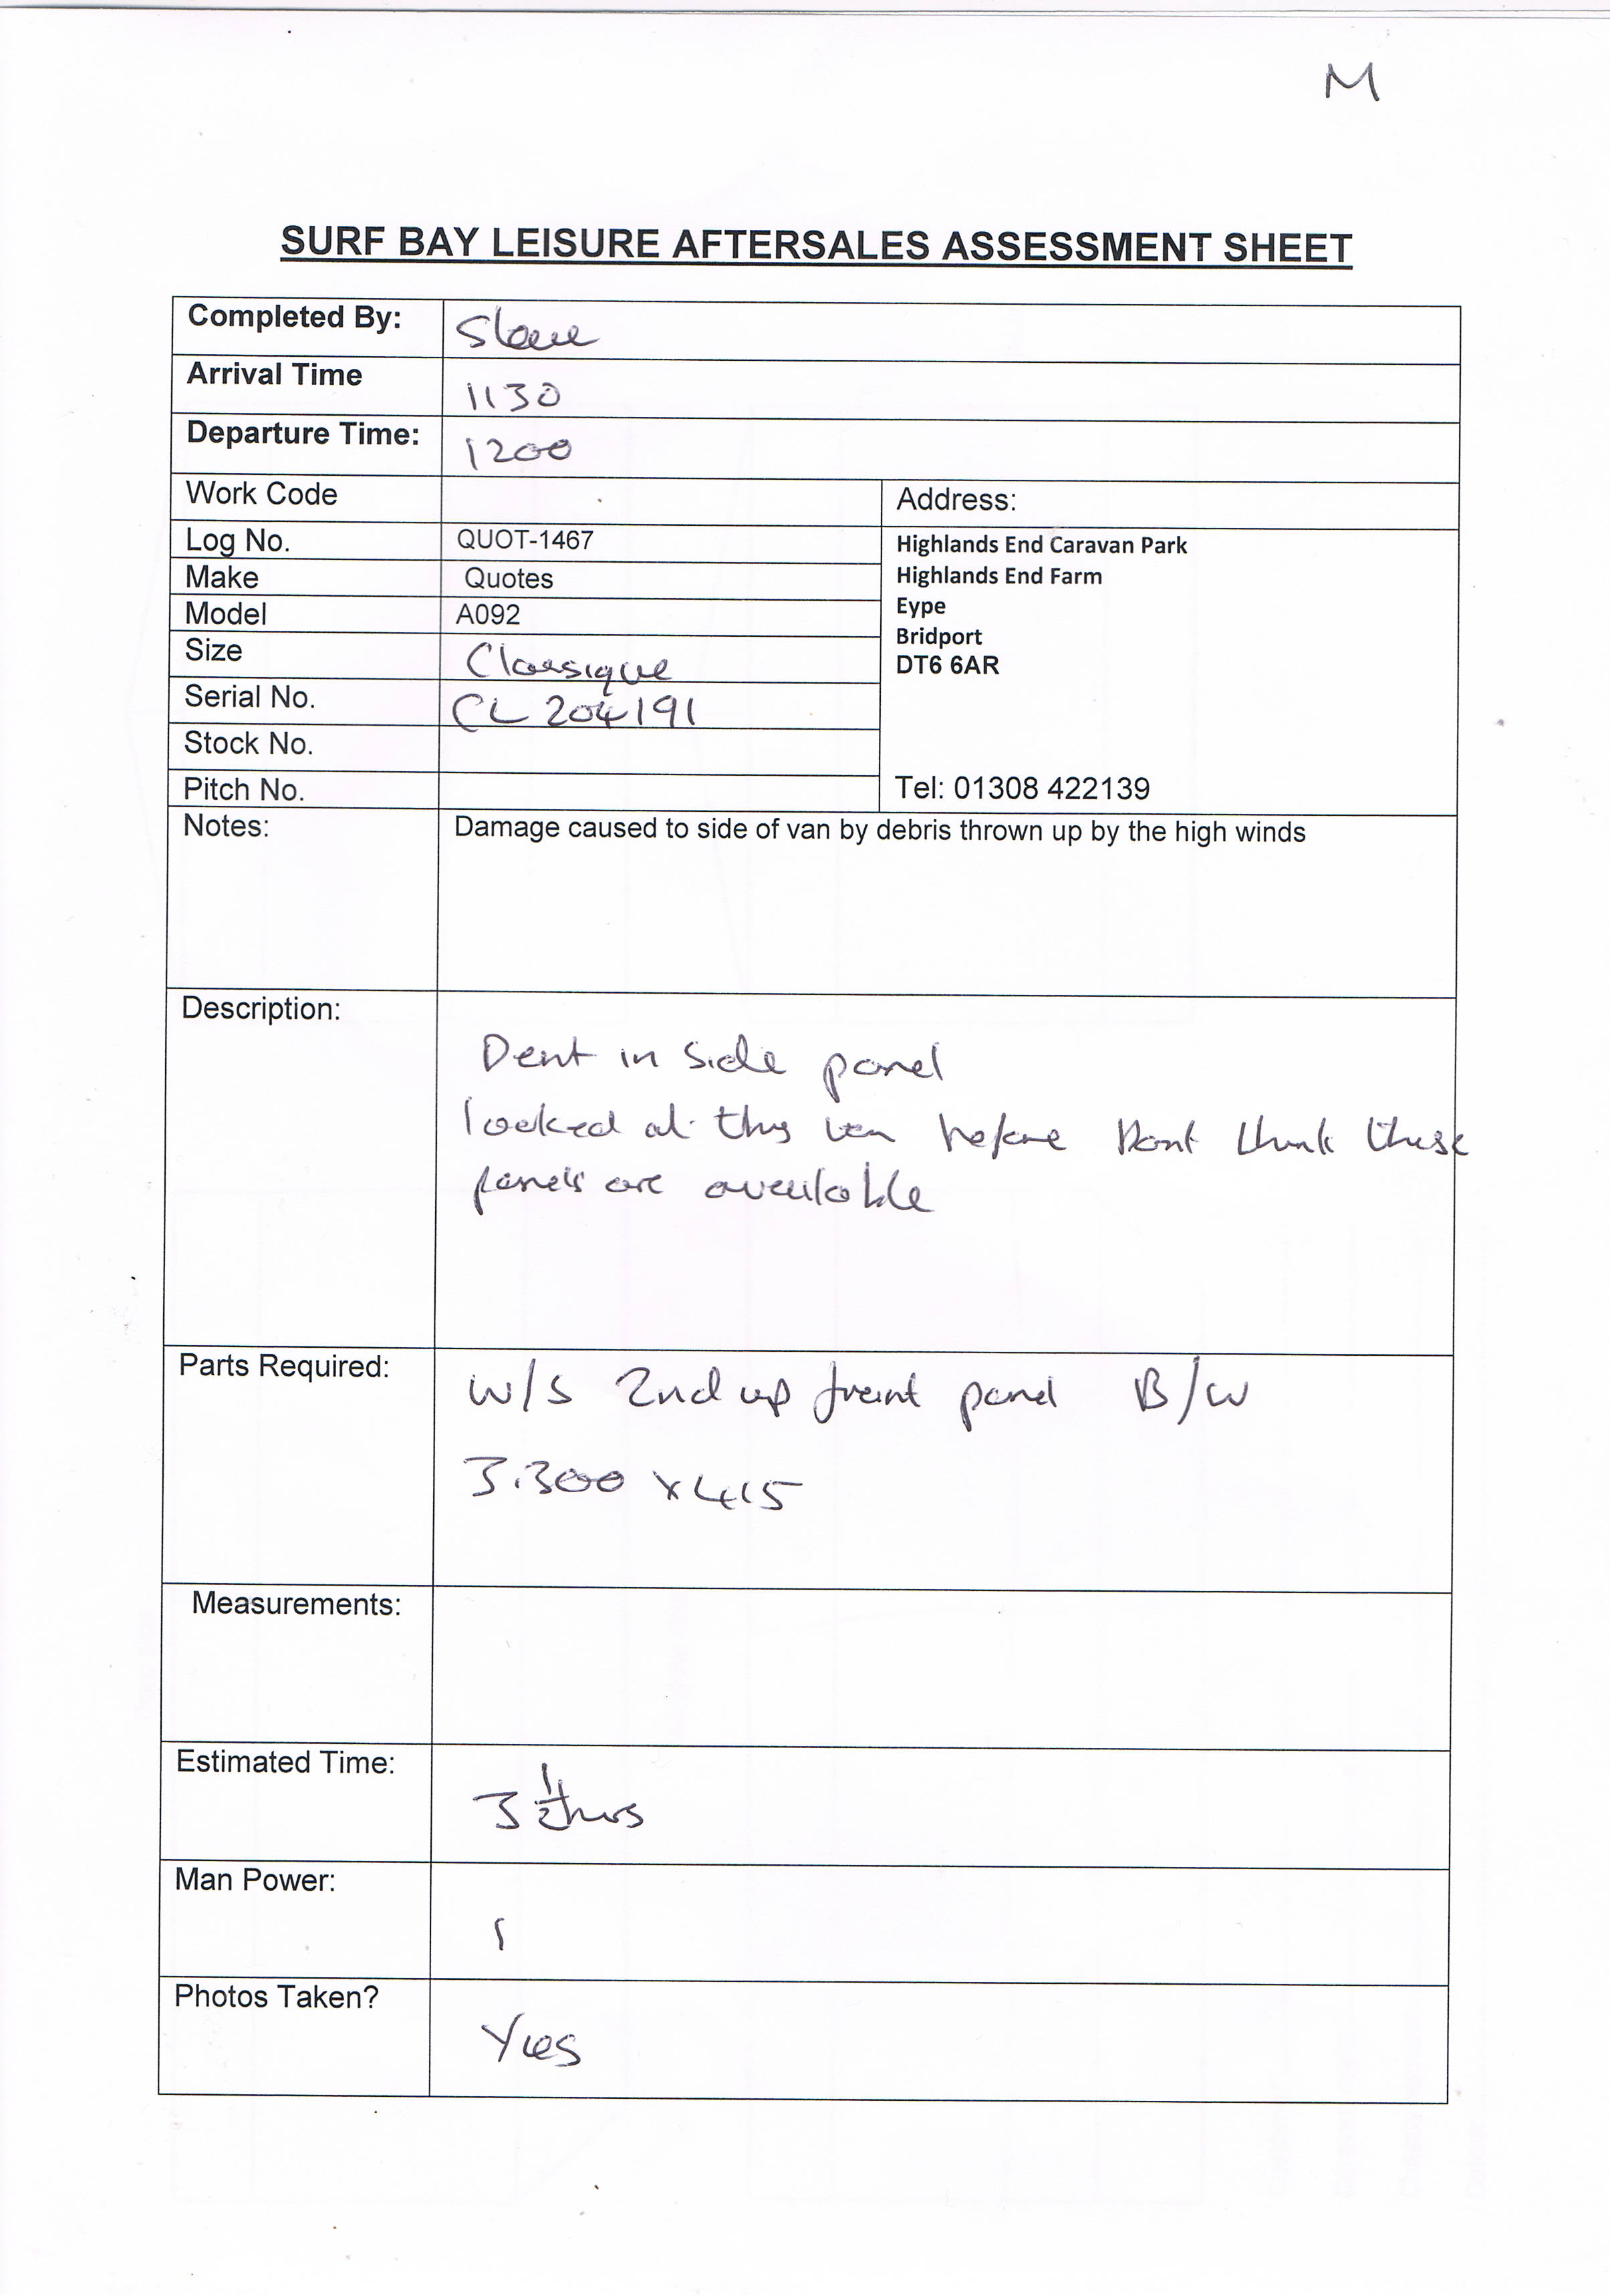 M
SURF BAY LEISURE AFTERSALES ASSESSMENT SHEET
Completed By: Steve
Arrival Time 1130
Departure Time: 1200
Work Code
Address:
Log No. QUOT-1467
Make Quotes
Model A092
Size Classique
Serial No. CL 204191
Stock No.
Pitch No.
Highlands End Caravan Park
Highlands End Farm
Eype
Bridport
DT6 6AR
Tel: 01308 422139
Notes: Damage caused to side of van by debris thrown up by the high winds
Description: Dent in side panel
looked at this van before Dont think these
panels are available
Parts Required: W/S 2nd up front panel B/W
3.300 x 415
Measurements:
Estimated Time: 3 1/2 hrs
Man Power: 1
Photos Taken? Yes